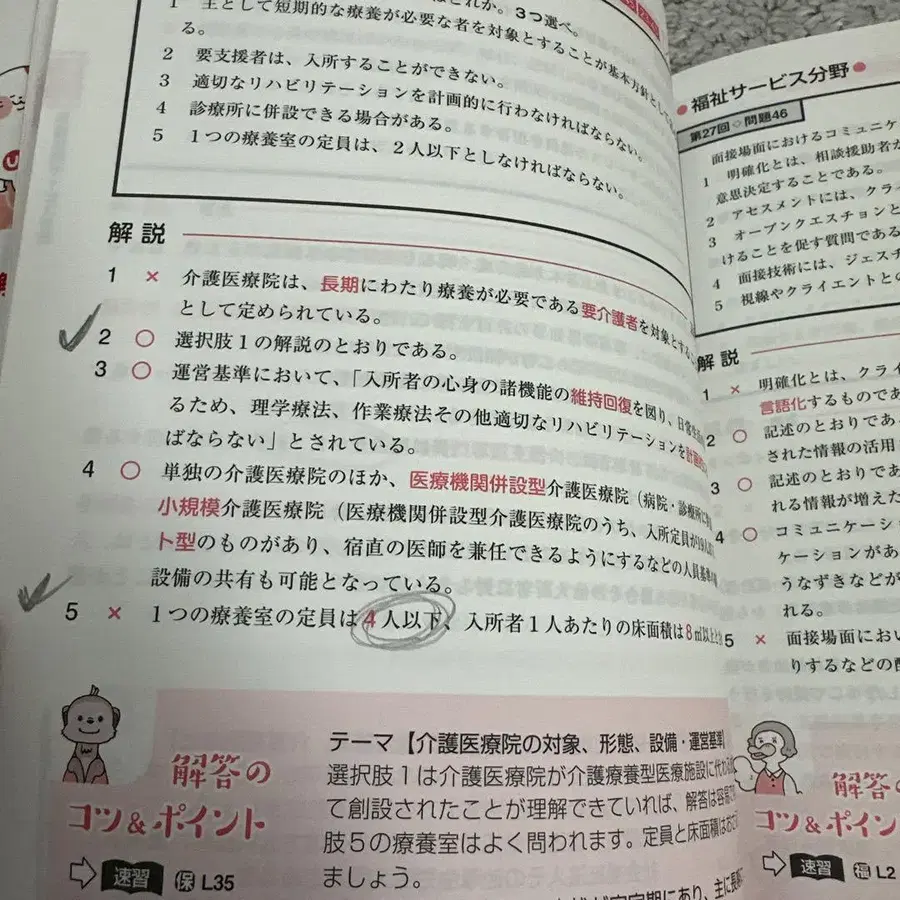 はどれか。3つ選べ。
1 主として短期的な療養が必要な者を対象とすることが基本方針とし
る。
2 要支援者は、入所することができない。
3 適切なリハビリテーションを計画的に行わなければならない。
4 診療所に併設できる場合がある。
5 1つの療養室の定員は、2人以下としなければならない。
解説
1 × 介護医療院は、長期にわたり療養が必要である要介護者を対象とする
として定められている。
2 ○ 選択肢1の解説のとおりである。
3 ○ 運営基準において、「入所者の心身の諸機能の維持回復を図り、日常生活
るため、理学療法、作業療法その他適切なリハビリテーションを計画的
ばならない」とされている。
4 ○ 単独の介護医療院のほか、医療機関併設型介護医療院（病院・診療所に
小規模介護医療院（医療機関併設型介護医療院のうち、入所定員が19人以下
ト型のものがあり、宿直の医師を兼任できるようにするなどの人員基準の
設備の共有も可能となっている。
5 × 1つの療養室の定員は4人以下、入所者1人あたりの床面積は8㎡以上と
解答の
コツ&ポイント
速習 保 L35
テーマ【介護医療院の対象、形態、設備・運営基準】
選択肢1は介護医療院が介護療養型医療施設に代わる
て創設されたことが理解できていれば、解答は容易
肢5の療養室はよく問われます。定員と床面積は
ましょう。
福祉サービス分野
第27回◇問題46
面接場面におけるコミュニケ
1 明確化とは、相談援助者が
意思決定することである。
2 アセスメントには、クライ
3 オープンクエスチョンと
けることを促す質問である
4 面接技術には、ジェスチ
5 視線やクライエントとの
解説
1 × 明確化とは、クライ
言語化するものであ
2 ○ 記述のとおりであ
された情報の活用
3 ○ 記述のとおりであ
れる情報が増えた
4 ○ コミュニケーショ
ケーションがあ
うなずきなどが
れる。
5 × 面接場面におい
りするなどの
解答の
コツ&ポイン
速習 福 L2